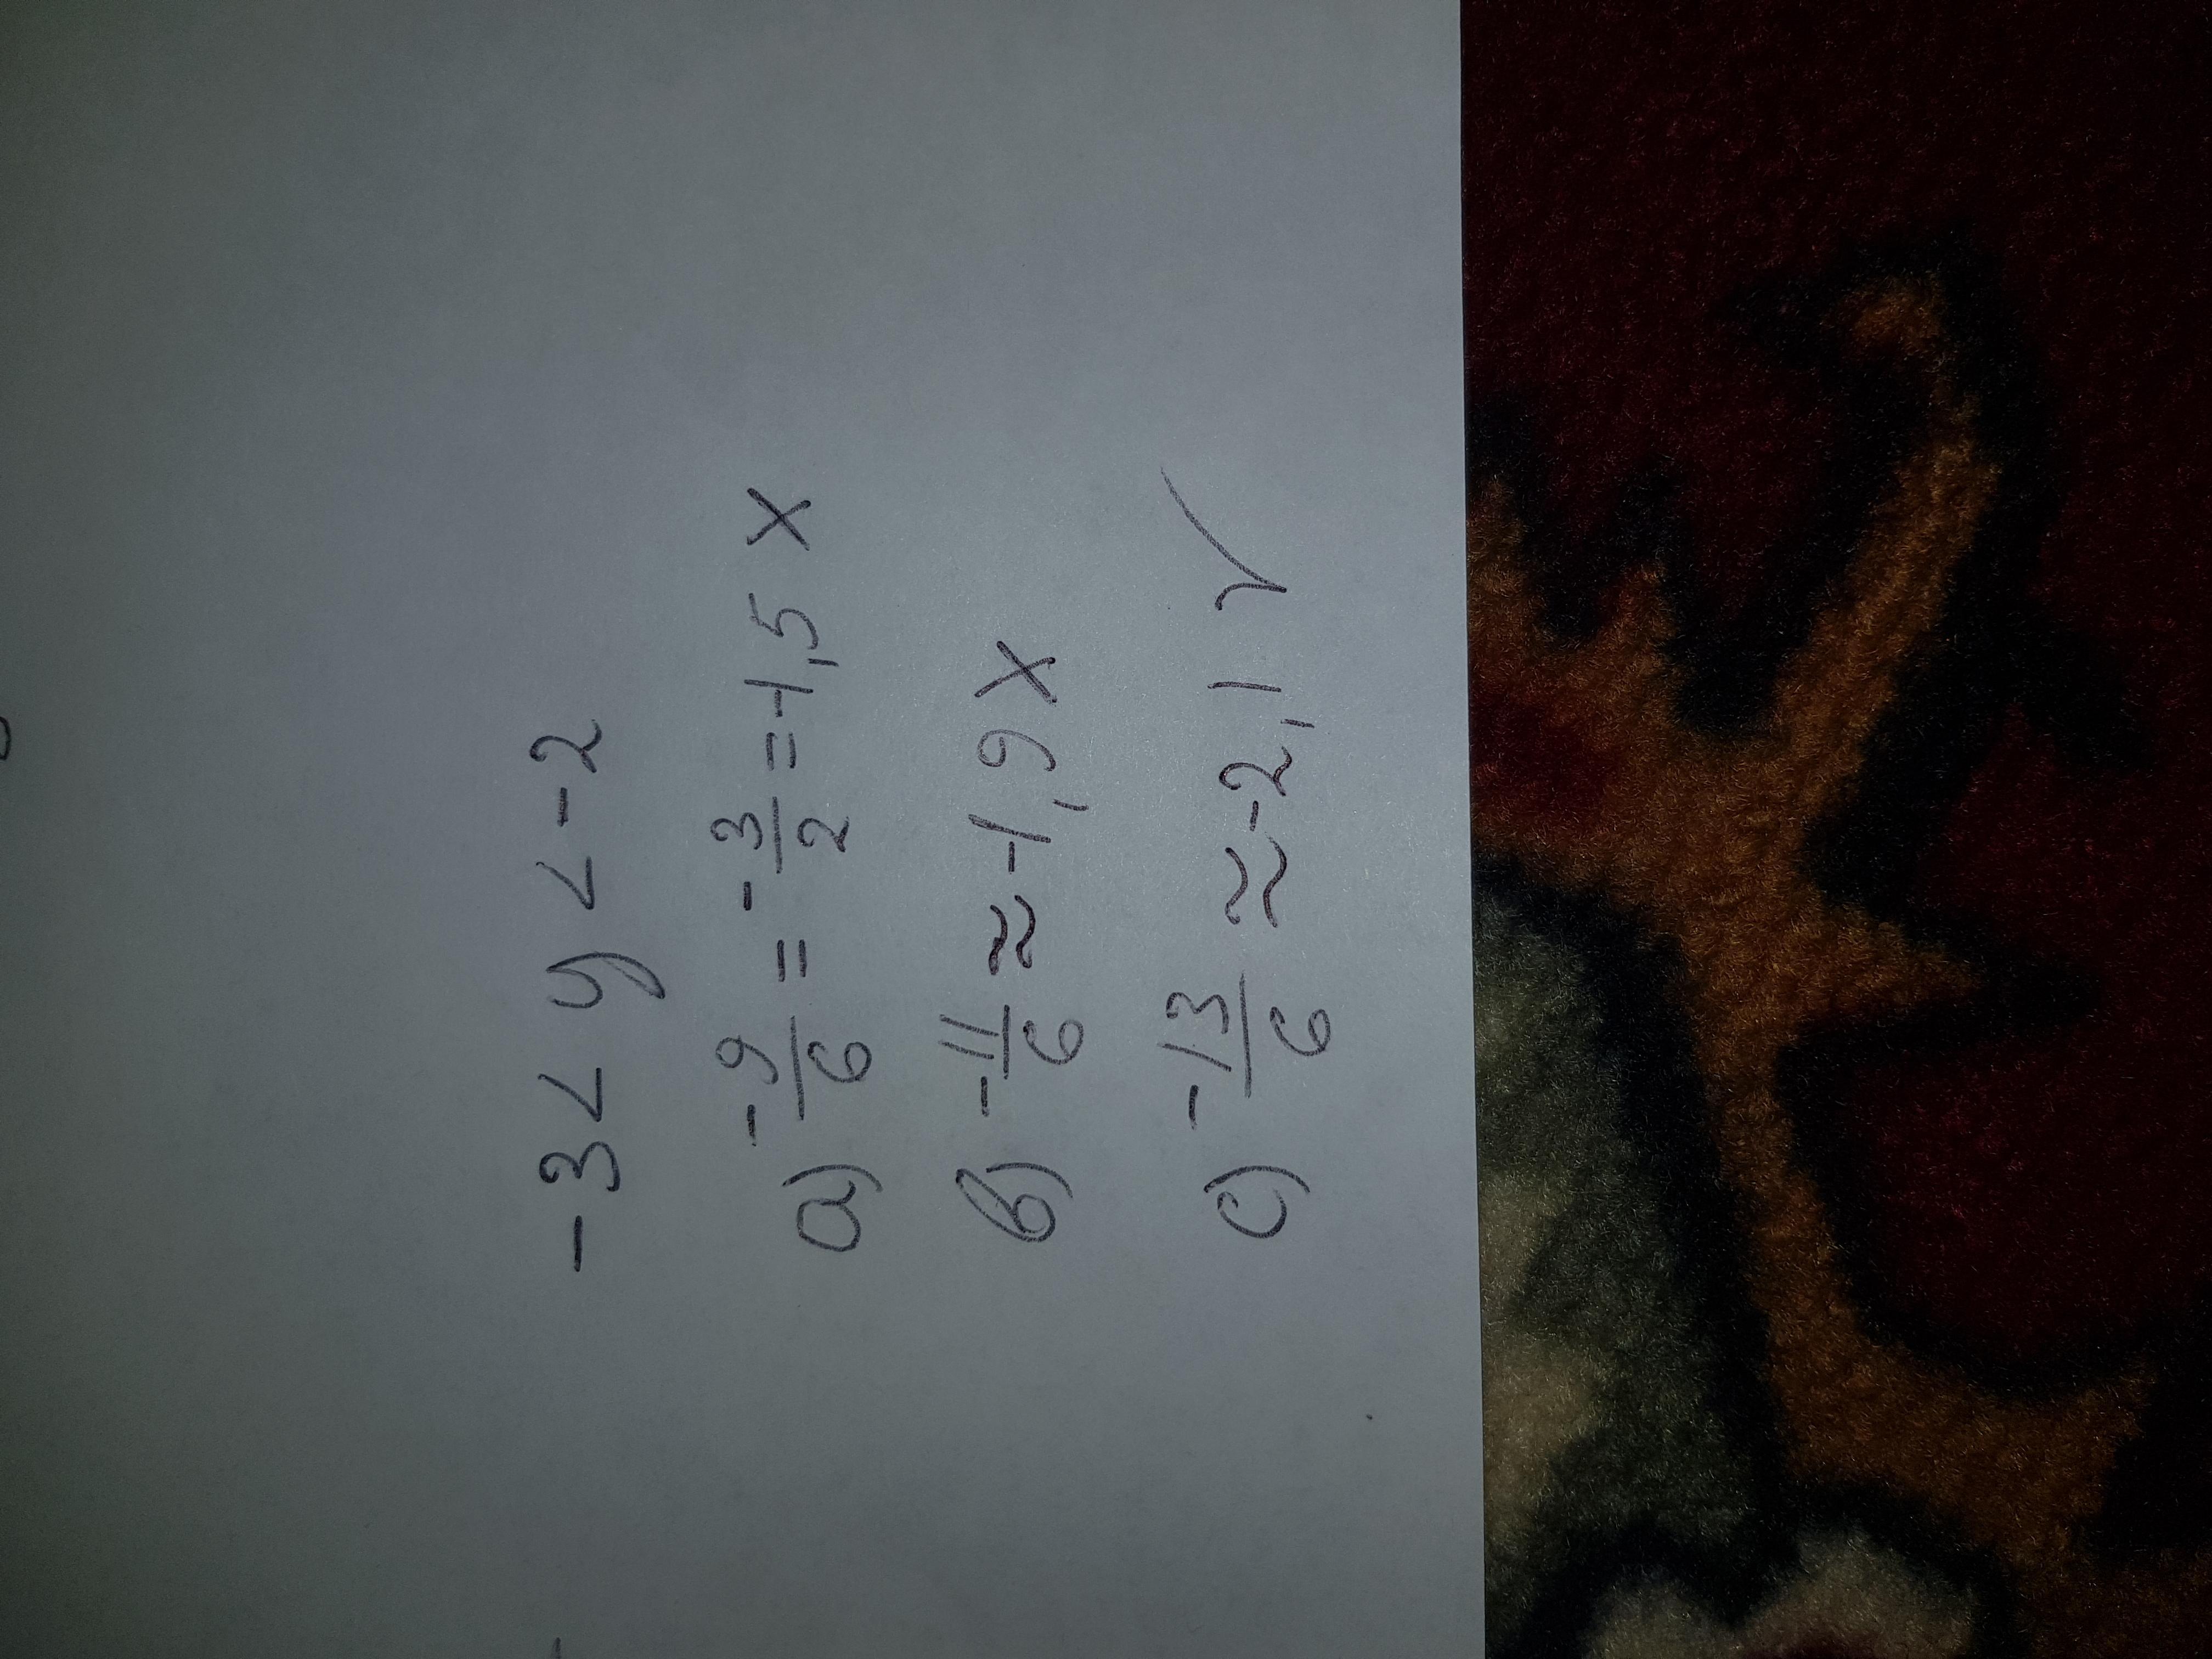 -3 < y < -2
a) -9/6 = -3/2 = -1,5 x
b) -11/6 ≈ -1,9 x
c) -13/6 ≈ -2,1 ✓